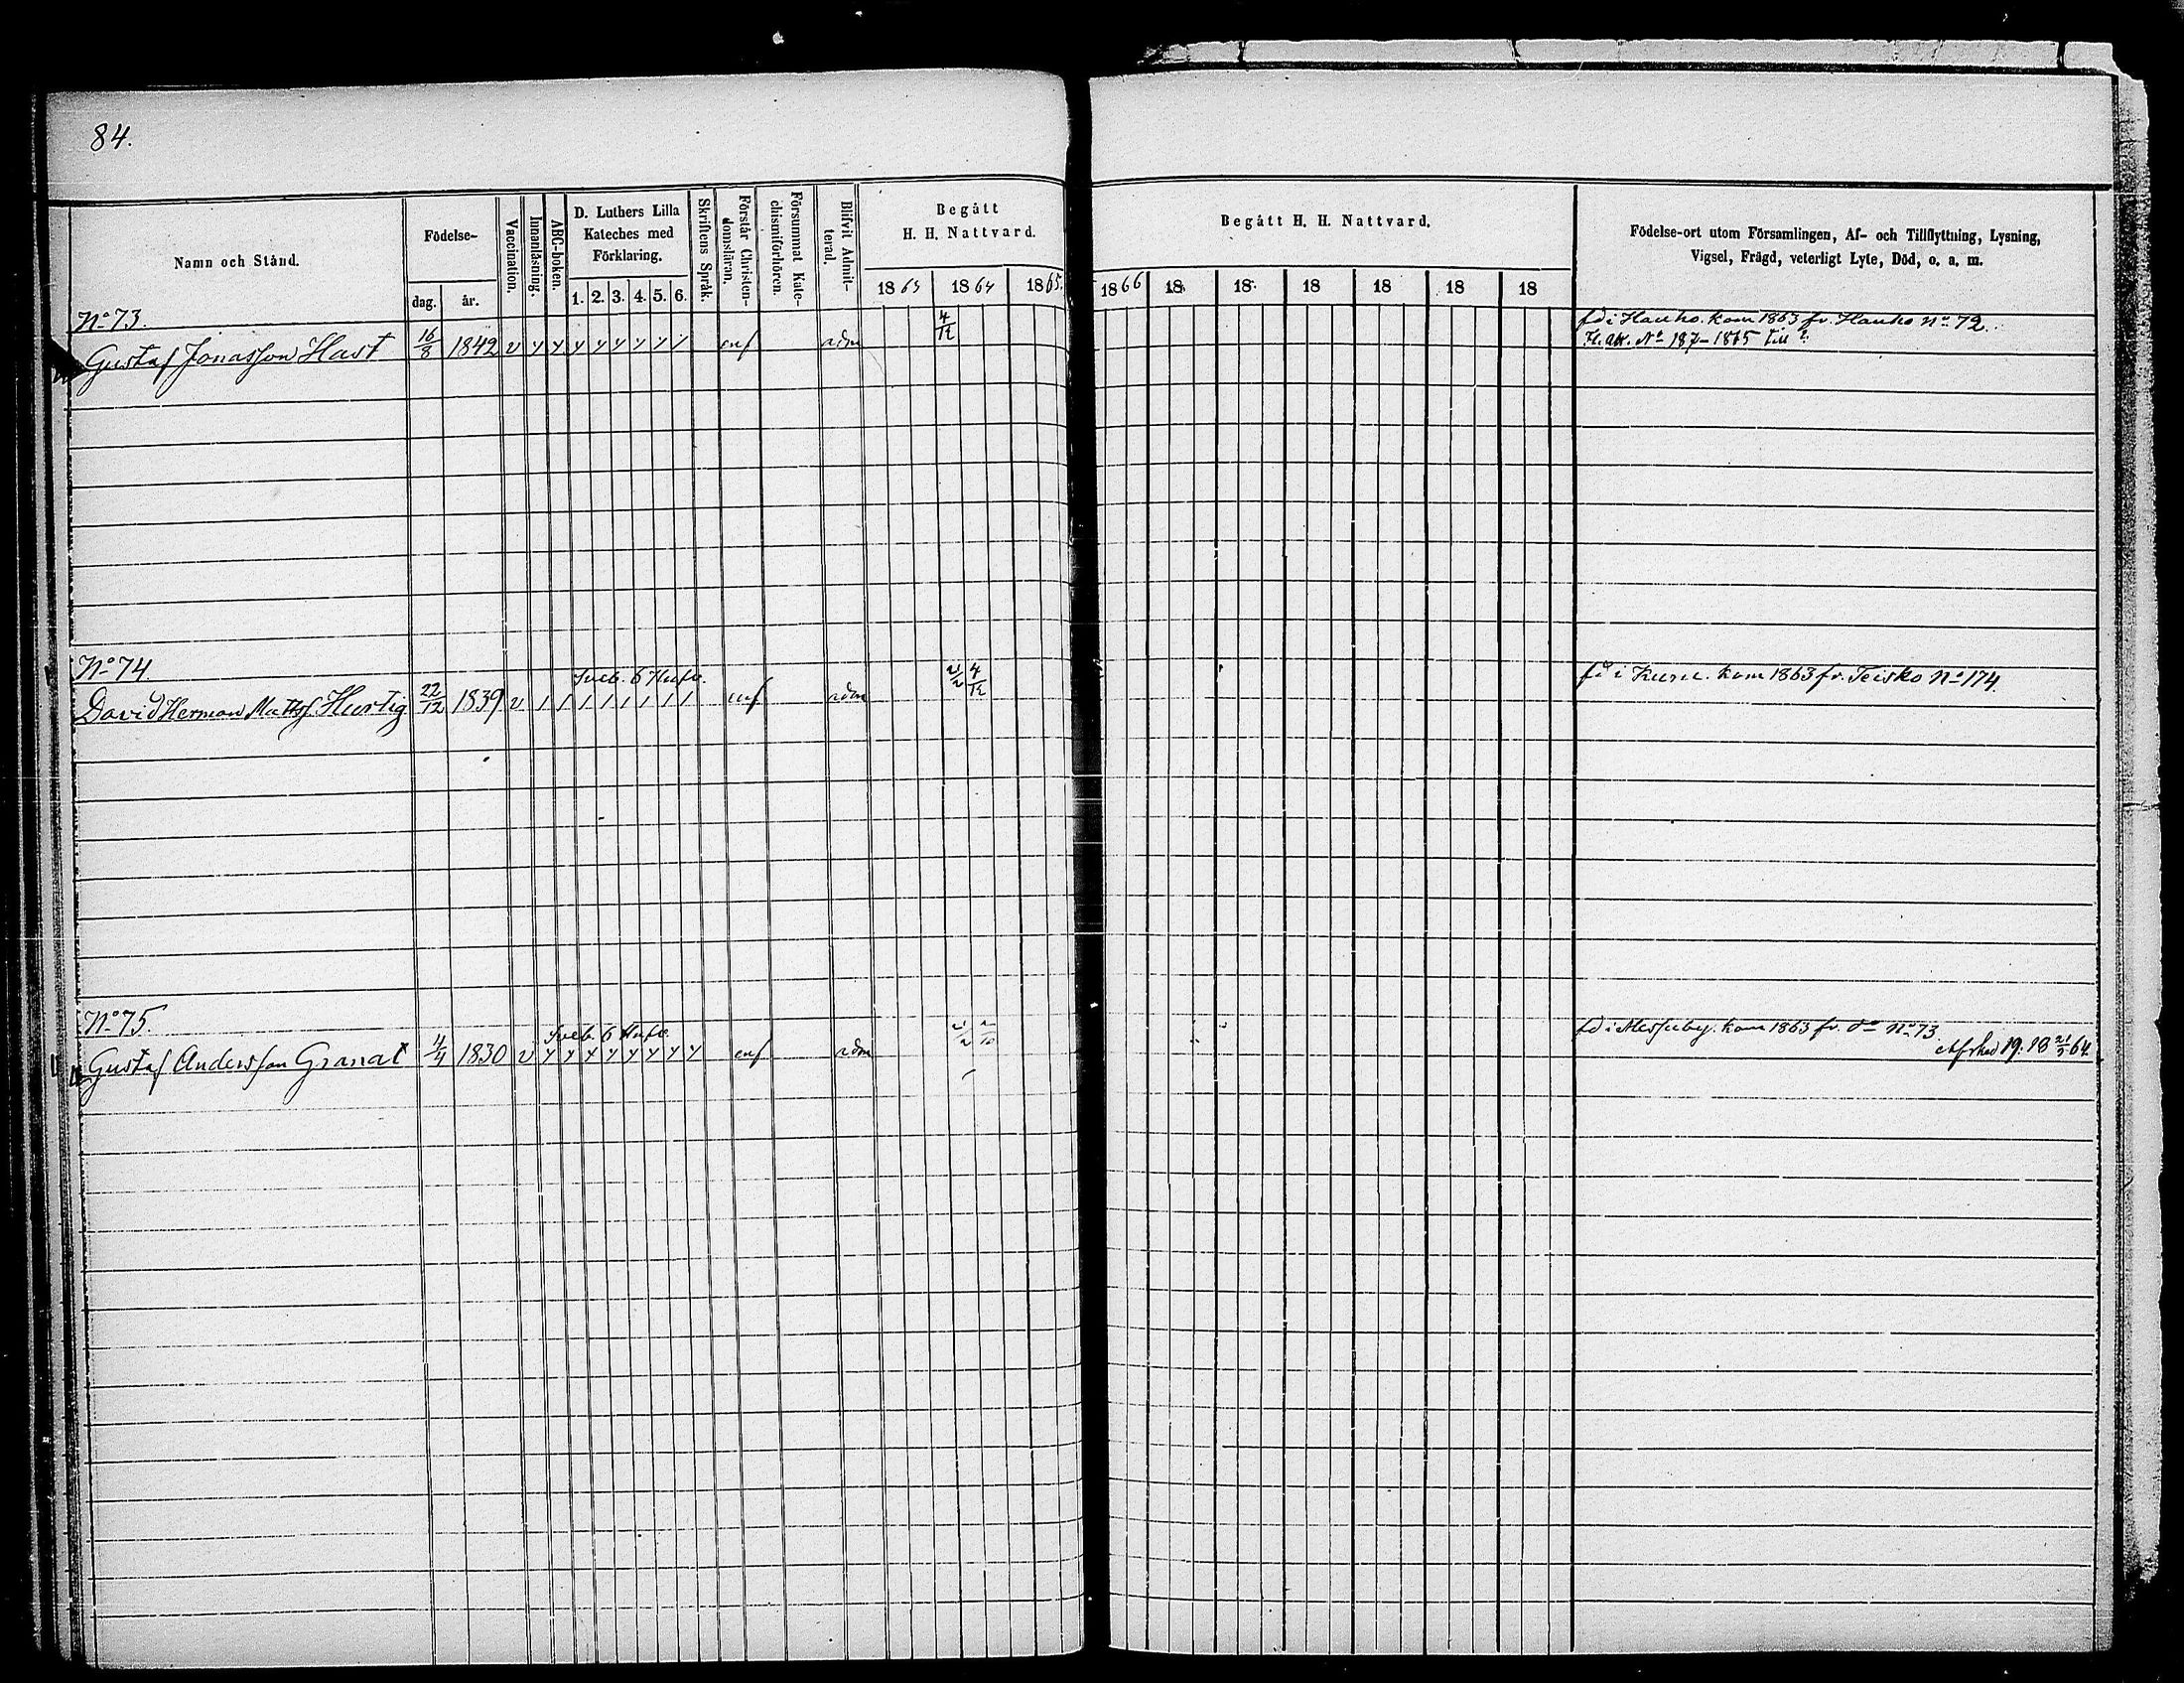 84.
Namn och Stånd.
Födelse-
dag.
år.
Vaccination.
Innanläsning.
ABC-boken.
D. Luthers Lilla
Kateches med
Förklaring.
1. 2. 3. 4. 5. 6.
Skriftens Språk.
Förstår Christen-
domsläran.
Försummat Kate-
chismiförhören.
Blifvit Admit-
terad.
Begått
H. H. Nattvard.
1863 1864 1865.
Begått H. H. Nattvard.
1866 18 18 18 18 18 18
Födelse-ort utom Församlingen, Af- och Tillflyttning, Lysning,
Vigsel, Frägd, veterligt Lyte, Död, o. a. m.
No 73.
Gustaf Jonasson Hast 16/8 1842 v adm 4/12
fd i Hauho. kom 1863 fr. Hauho No 72.
No 74
Sveb. 6 Hufv.
David Herman Mattsf. Hurtig 22/12 1839 v adm 4/12
fd i Kuru. kom 1863 fr. Teisko No 174.
No 75.
Sveb. 6 Hufv.
Gustaf Andersson Granat 4/4 1830 v adm
fd i Messuby. kom 1863 fr. do No 73
Afsked 19. 18 21/5 64.